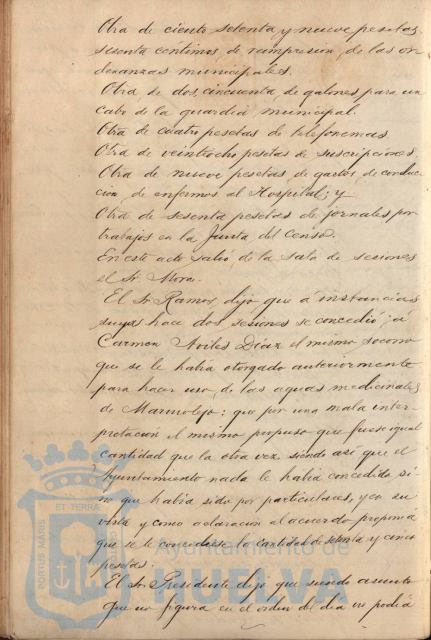 Otra de ciento setenta y nueve pesetas
sesenta centimos de reimpresion, de las or
denanzas municipales.
Otra, de dos, cincuenta de galones para un
cabo de la guardia municipal.
Otra de cuatro pesetas de telefonemas
Otra de veintiocho pesetas de suscripciones.
Otra de nueve pesetas, de gastos, de conduc
cion, de enfermos al Hospital; y
Otra de sesenta pesetas de jornales por
trabajos en la Junta del Censo.
En este acto salió, de la sala de sesiones
el Sr. Mora.
El Sr Ramos, dijo que á instancias
suyas hace dos, sesiones se concedió, á
Carmen Aviles Diaz el mismo socorro
que se le habia otorgado anteriormente
para hacer uso, de las aguas medicinales
de Marmolejo: que por una mala inter
pretacion el mismo propuso que fuese igual
cantidad que la otra vez, siendo asi que el
Ayuntamiento nada le habia concedido si-
no que habia sido por particulares, y en su
vista y como aclaracion al acuerdo proponia
que se le concediese la cantidad de setenta y cinco
pesetas.
El Sr. Presidente dijo que siendo asunto
que no figura en el orden del dia no podia
PORTUS MARIS
ET TERRÆ
Ayuntamiento de
HUELVA